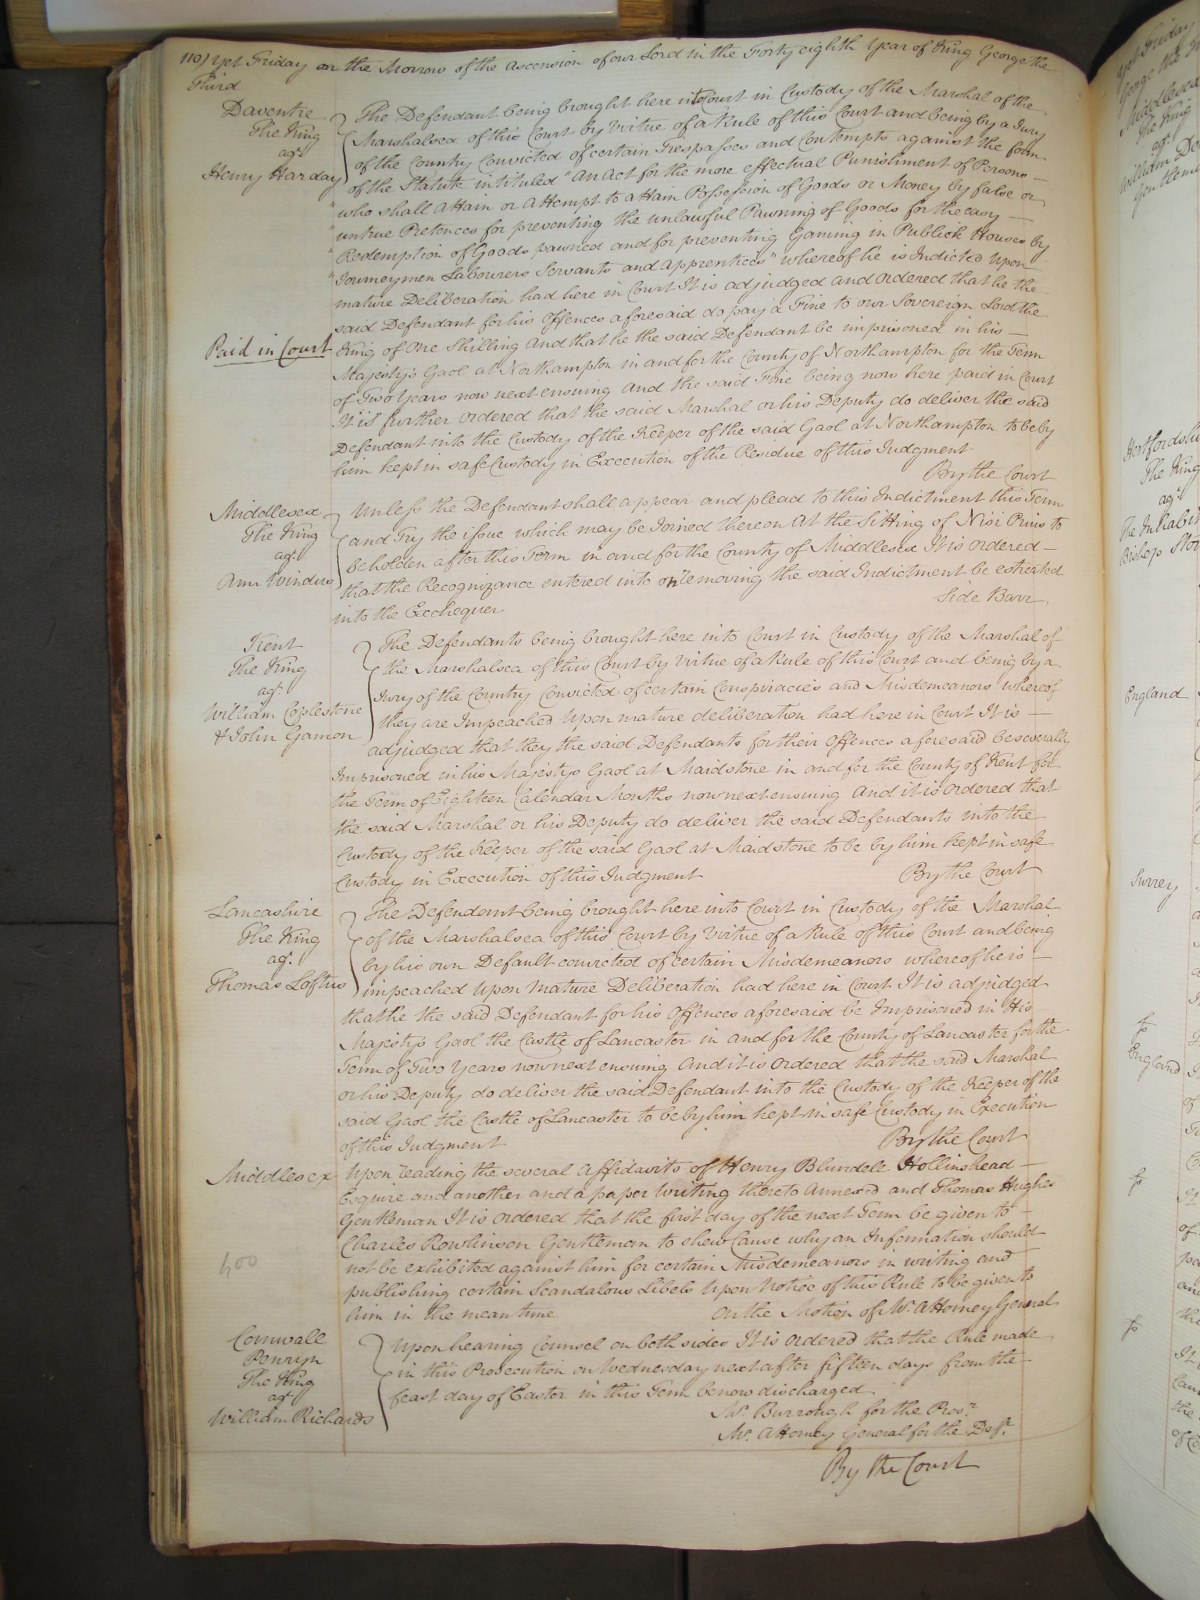 110) yet Friday on the Morrow of the Ascension of our Lord in the Forty eighth Year of King George the
Third
Daventre
The King
agt.
Henry Harday
The Defendant being brought here into Court in Custody of the Marshal of the
Marshalsea of this Court by Virtue of a Rule of this Court and being by a Jury
of the Country Convicted of certain Trespasses and Contempts against the form
of the Statute intituled "An Act for the more effectual Punishment of Persons
"who shall attain or attempt to attain Possession of Goods or Money by false or
"untrue Pretences for preventing the unlawful Pawning of Goods for the easy
"Redemption of Goods pawned and for preventing Gaming in Publick Houses by
"Journeymen Labourers Servants and Apprentices" whereof he is Indicted Upon
mature Deliberation had here in Court It is adjudged and Ordered that he the
said Defendant for his Offences aforesaid do pay a Fine to our Sovereign Lord the
Paid in Court
King of One Shilling And that he the said Defendant be imprisoned in his
Majesty's Gaol at Northampton in and for the County of Northampton for the Term
of Two Years now next ensuing And the said Fine being now here paid in Court
It is further Ordered that the said Marshal or his Deputy do deliver the said
Defendant into the Custody of the Keeper of the said Gaol at Northampton to be by
him kept in safe Custody in Execution of the Residue of this Judgment
By the Court
Middlesex
The King
agt.
Ann Windus
Unless the Defendant shall appear and plead to this Indictment this Term
and Try the issue which may be Joined thereon At the Sitting of Nisi Prius to
be holden after this Term in and for the County of Middlesex It is Ordered
that the Recognizance entered into on removing the said Indictment be estreated
into the Exchequer
Side Barr
Kent
The King
agt.
William Coplestone
& John Gamon
The Defendants being brought here into Court in Custody of the Marshal of
the Marshalsea of this Court by Virtue of a Rule of this Court and being by a
Jury of the Country Convicted of certain Conspiracies and Misdemeanors whereof
they are Impeached Upon mature deliberation had here in Court It is
adjudged that they the said Defendants for their Offences aforesaid be severally
Imprisoned in his Majestys Gaol at Maidstone in and for the County of Kent for
the Term of Eighteen Calendar Months now next ensuing And it is Ordered that
the said Marshal or his Deputy do deliver the said Defendants into the
Custody of the Keeper of the said Gaol at Maidstone to be by him kept in safe
Custody in Execution of this Judgment
By the Court
Lancashire
The King
agt.
Thomas Loftus
The Defendant being brought here into Court in Custody of the Marshal
of the Marshalsea of this Court by Virtue of a Rule of this Court and being
by his own Default convicted of certain Misdemeanors whereof he is
impeached Upon Mature Deliberation had here in Court It is adjudged
that he the said Defendant for his Offences aforesaid be Imprisoned in His
Majesty's Gaol the Castle of Lancaster in and for the County of Lancaster for the
Term of Two Years now next ensuing And it is Ordered that the said Marshal
or his Deputy do deliver the said Defendant into the Custody of the Keeper of the
said Gaol the Castle of Lancaster to be by him kept in safe Custody in Execution
of this Judgment
By the Court
Middlesex
Upon reading the several Affidavits of Henry Blundell Hollinshead
Esquire and another and a paper Writing thereto Annexed and Thomas Hughes
Gentleman It is Ordered that the first day of the next Term be given to
Charles Rowlinson Gentleman to shew Cause why an Information should
not be exhibited against him for certain Misdemeanors in writing and
publishing certain Scandalous Libels Upon Notice of this Rule to be given to
him in the mean time
On the Motion of Mr. Attorney General
Cornwall
Penryn
The King
agt.
William Richards
Upon hearing Counsel on both sides It is Ordered that the Rule made
in this Prosecution on Wednesday next after fifteen days from the
feast day of Easter in this Term be now discharged
Mr. Burrough for the Prosr.
Mr. Attorney General for the Deft.
By the Court
Hertfordsh
The King
agt.
The Inhabit
Bishop Stor
England
Surrey
England